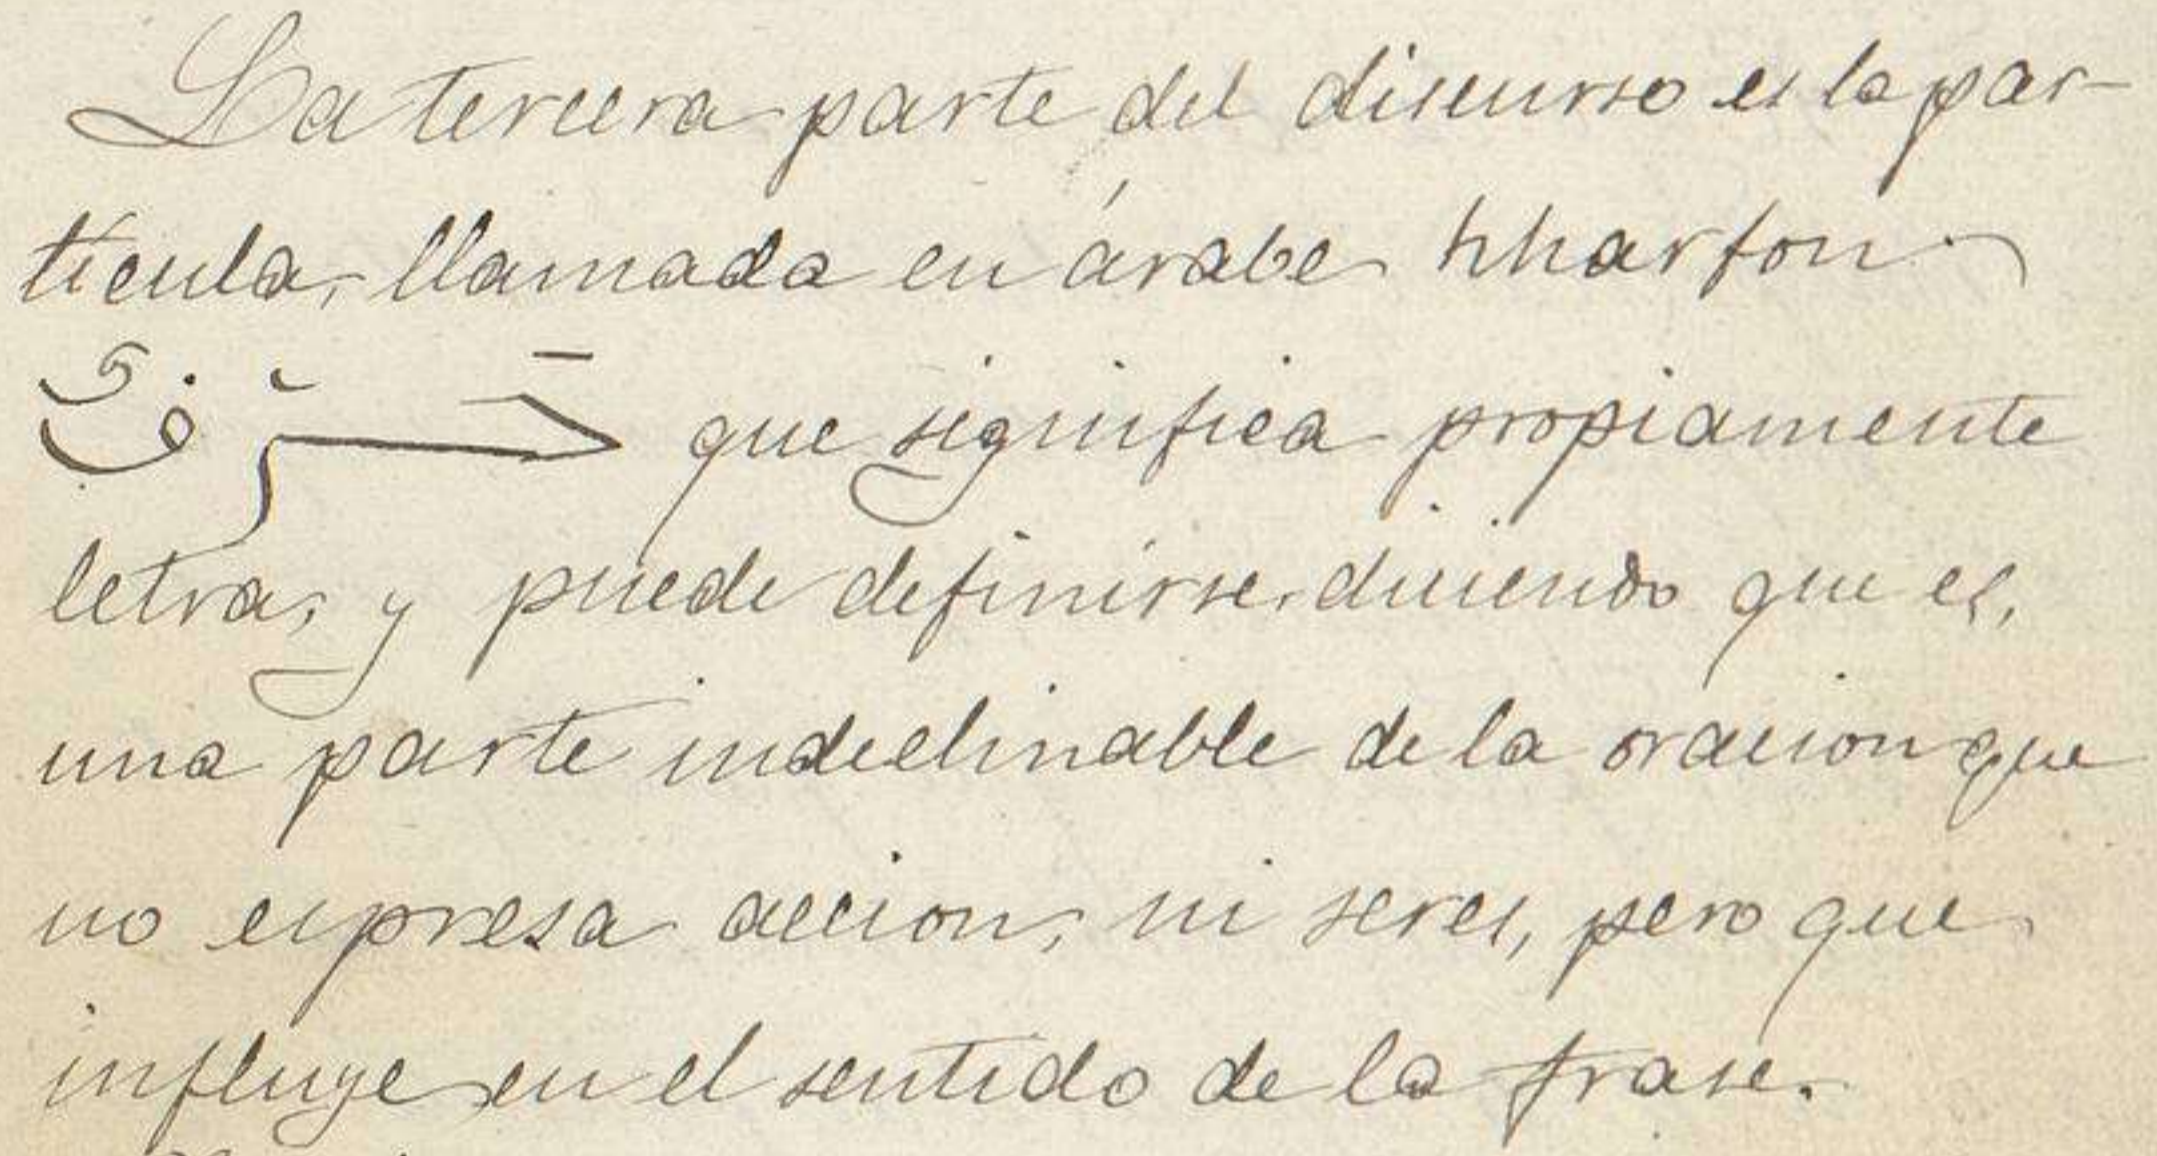 La tercera parte del discurso es la par-
tícula, llamada en árabe hharfon
حَرْفٌ que significa propiamente
letra, y puede definirse, diciendo que es,
una parte indeclinable de la oracion que
no expresa accion, ni seres, pero que
influye en el sentido de la frase.